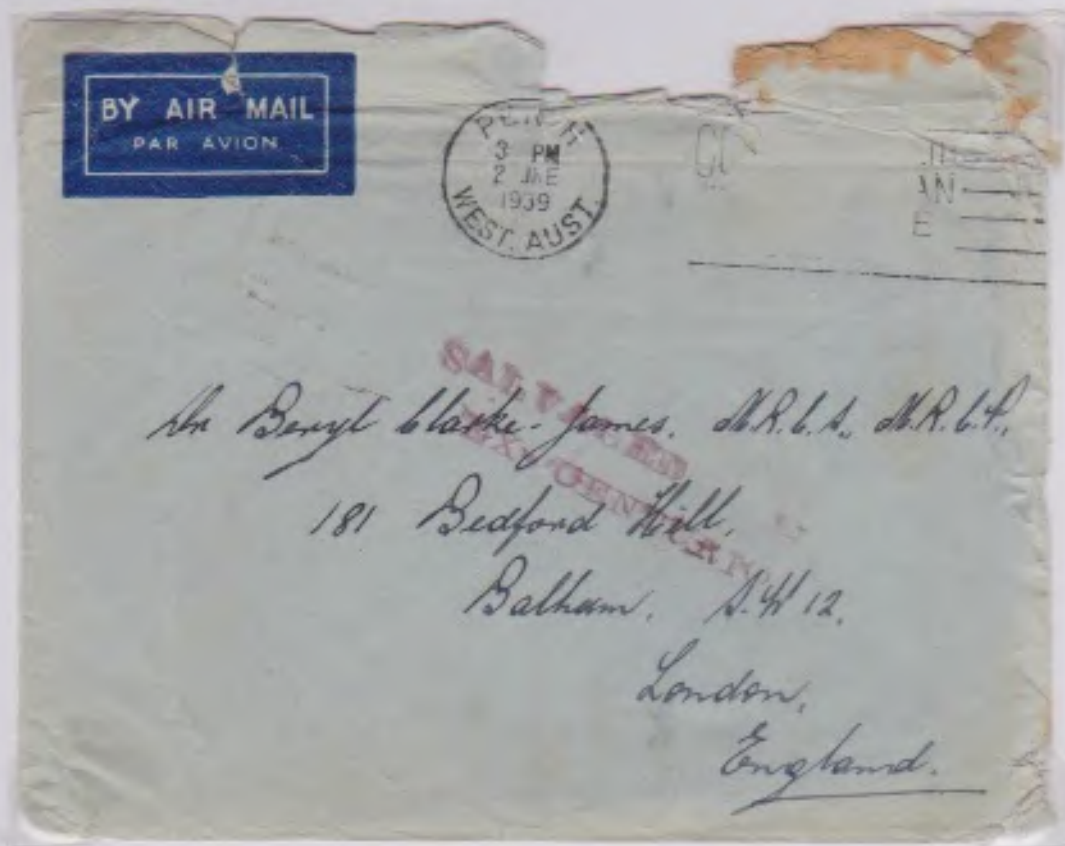 BY AIR MAIL
PAR AVION
PERTH
3 PM
2 JNE
1939
WEST. AUST.
AN
E
SALVAGED
Dr Beryl Clarke-James. M.R.C.S., M.R.C.P.,
181 Bedford Hill,
Balham. S.W 12.
London,
England.